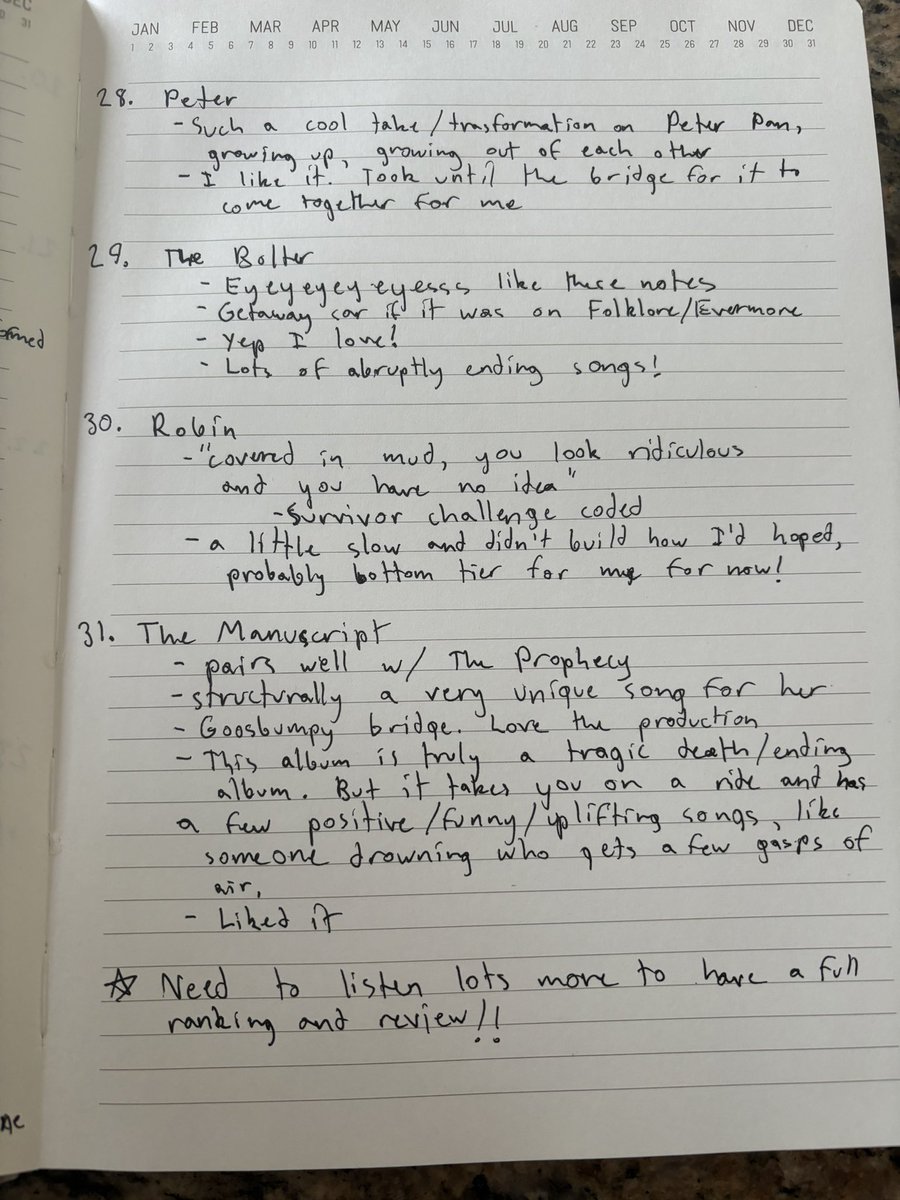 EC
31
JAN FEB MAR APR MAY JUN JUL AUG SEP OCT NOV DEC
1 2 3 4 5 6 7 8 9 10 11 12 13 14 15 16 17 18 19 20 21 22 23 24 25 26 27 28 29 30 31
28. Peter
- Such a cool take/trasformation on Peter Pan,
growing up, growing out of each other
- I like it. Took until the bridge for it to
come together for me
29. The Bolter
- Eyeyeyey eyesss like these notes
- Getaway car if it was on Folklore/Evermore
- Yep I love!
- Lots of abruptly ending songs!
30. Robin
- "covered in mud, you look ridiculous
and you have no idea"
- Survivor challenge coded
- a little slow and didn't build how I'd hoped,
probably bottom tier for me for now!
31. The Manuscript
- pairs well w/ The Prophecy
- structurally a very unique song for her
- Goosbumpy bridge. Love the production
- This album is truly a tragic death/ending
album. But it takes you on a ride and has
a few positive/funny/uplifting songs, like
someone drowning who gets a few gasps of
air,
- Liked it
☆ Need to listen lots more to have a full
ranking and review!!